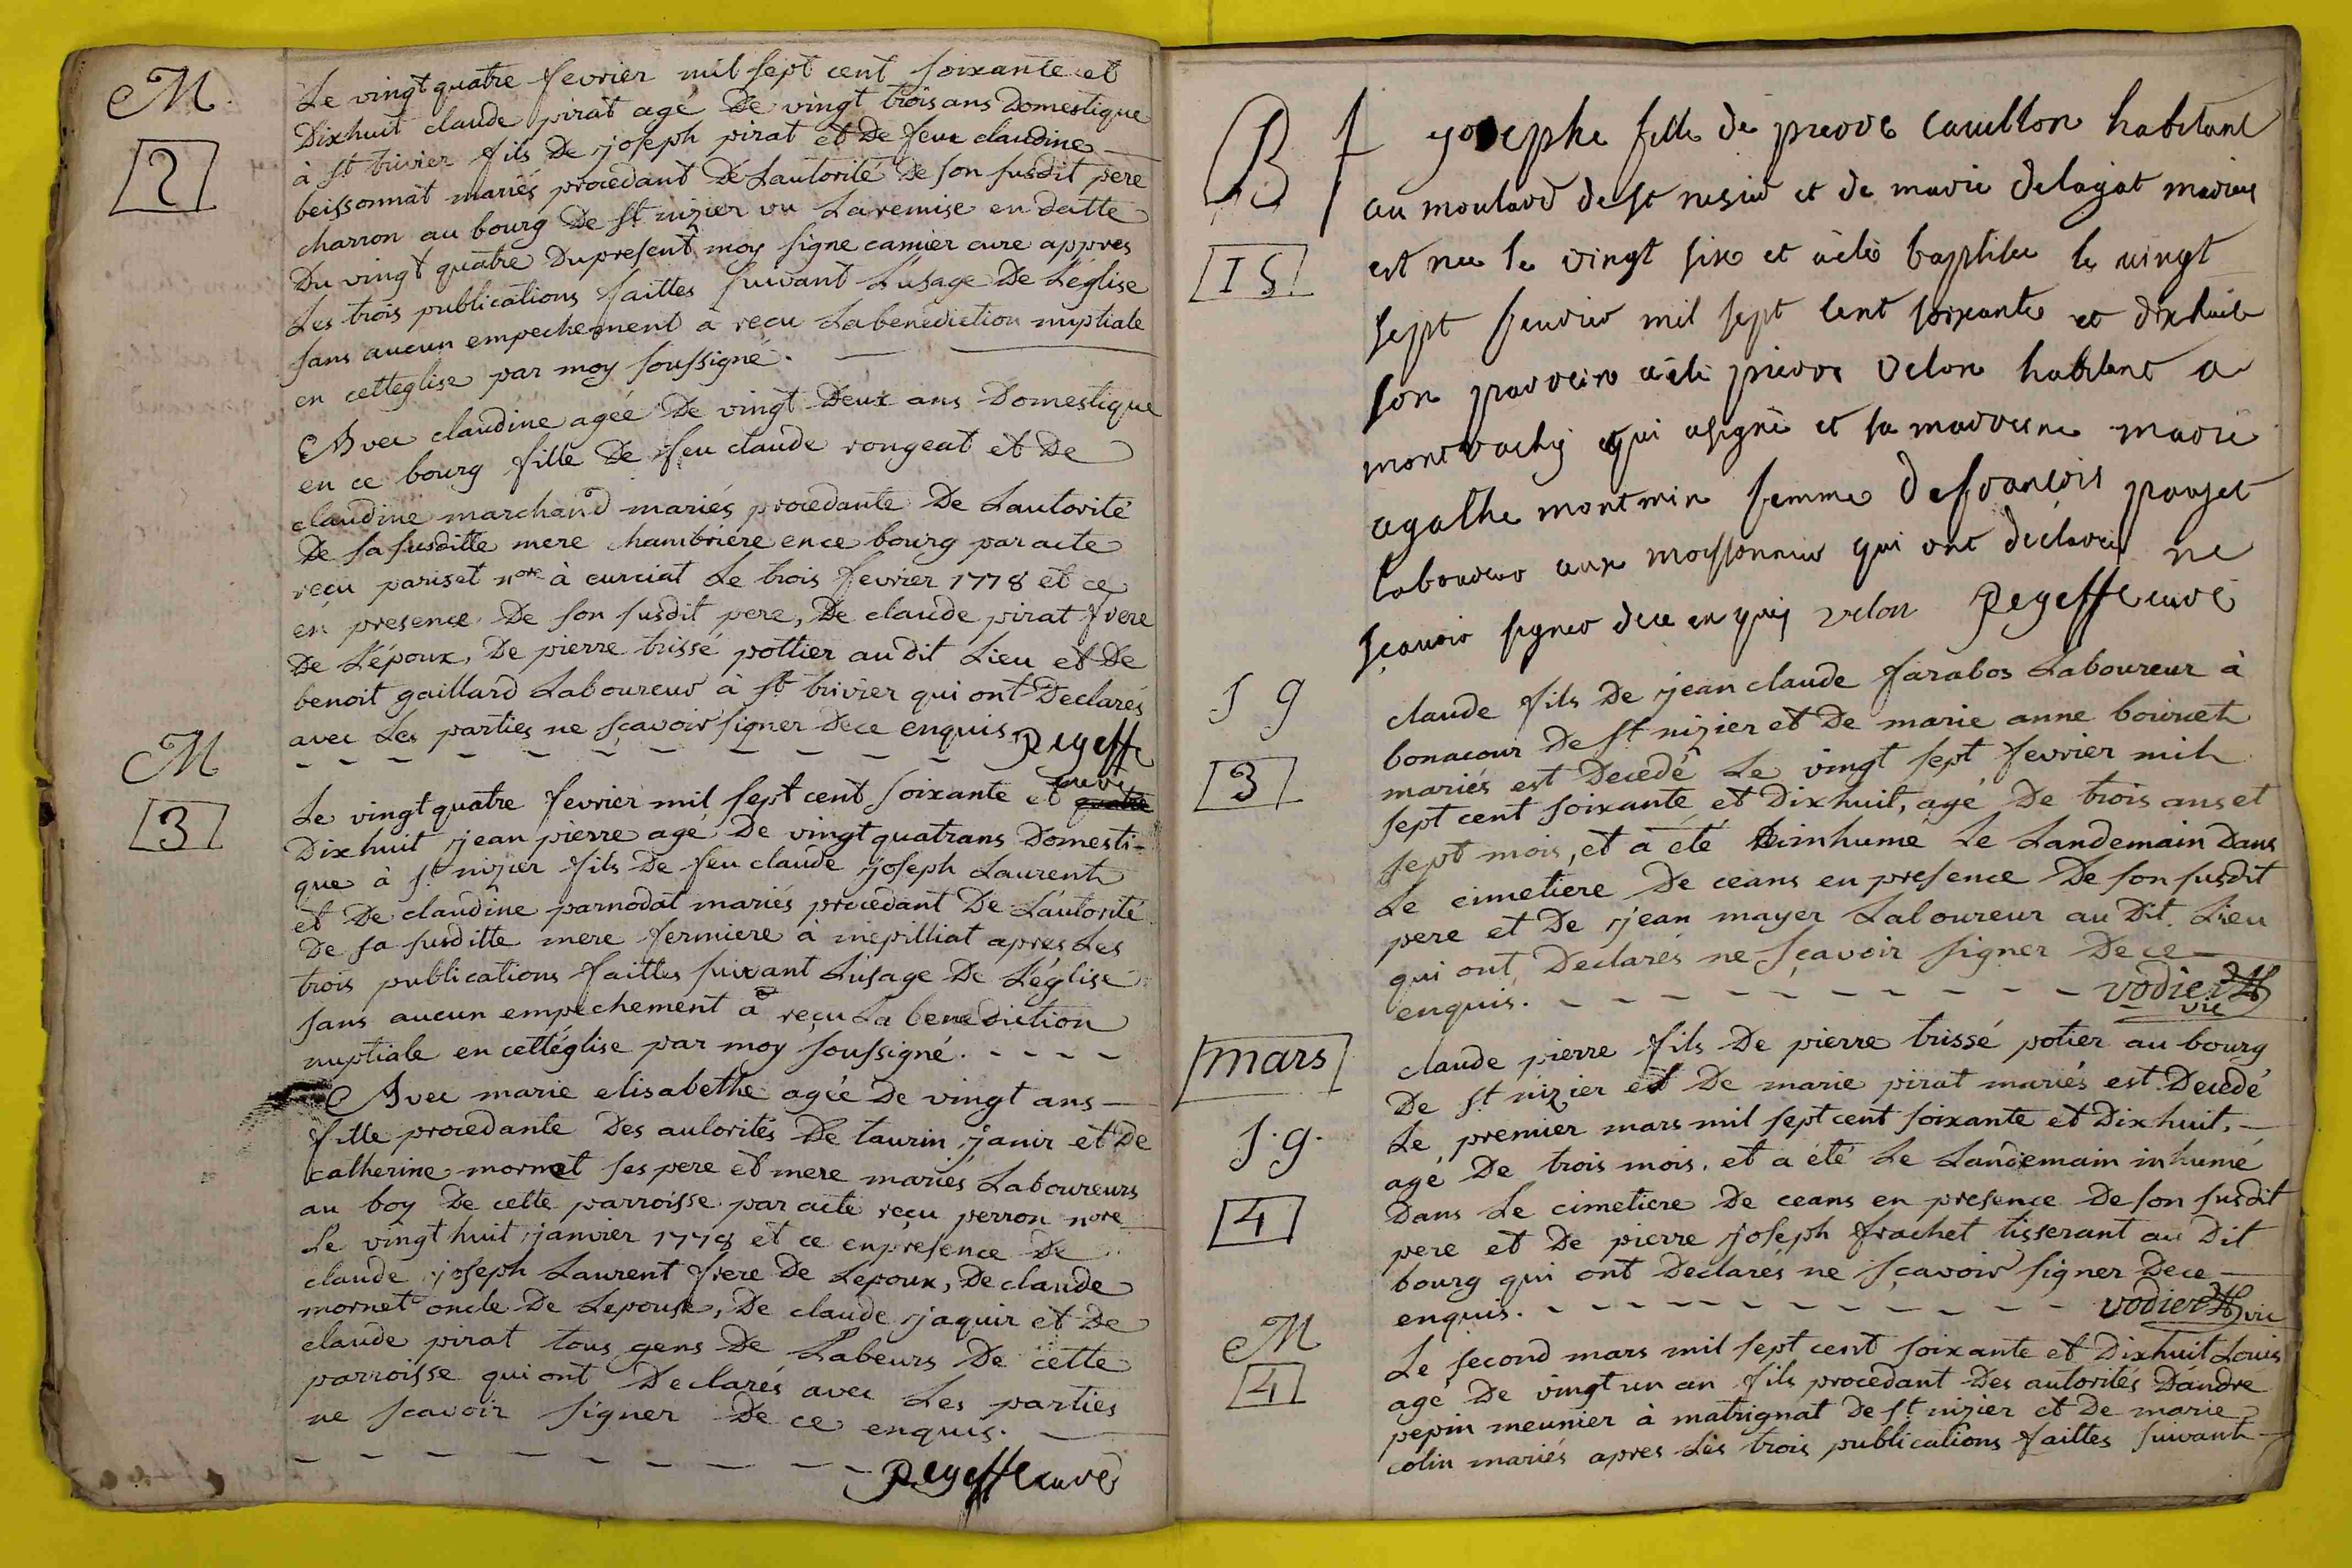 M.
2
Le vingt quatre fevrier mil sept cent soixante et
Dixhuit claude pirat agé De vingt trois ans Domestique
à st trivier fils De joseph pirat et De feue claudine
beissonnat mariés procedant De Lautorité De son susdit pere
charron au bourg De st nizier vu La remise en datte
Du vingt quatre Du present moy signe camier cure appres
Les trois publications faittes suivant L'usage De L'église
sans aucun empechement a reçu La benediction nuptiale
en cetteglise par moy soussigné.
Avec claudine agée De vingt Deux ans Domestique
en ce bourg fille De feu claude rongeat et De
claudine marchand mariés procedante De Lautorité
De sa susditte mere chambriere ence bourg par acte
reçu pariset nore à curciat Le trois fevrier 1778 et ce
en presence De son susdit pere, De claude pirat frere
De L'époux, De pierre trissé pottier audit Lieu et De
benoit gaillard Laboureur à st trivier qui ont Declarés
avec Les parties ne sçavoir signer Dece enquis
Pegeffe
curé
M
3
Le vingt quatre fevrier mil sept cent soixante et quatre
Dixhuit jean pierre agé De vingt quatrans Domesti-
que à st nizier fils De feu claude joseph Laurent
et De claudine parnodat mariés procedant De L'autorité
De sa susditte mere fermiere à mepilliat apres Les
trois publications faittes suivant L'usage De L'église
sans aucun empechement à reçu La benediction
nuptiale en cettéglise par moy soussigné.
Avec marie elisabethe agée De vingt ans
fille procedante Des autorités De taurin janir et De
catherine mornet ses pere et mere mariés Laboureurs
au boy De cette parroisse par acte reçu perron nore
Le vingt huit janvier 1778 et ce enpresence De
claude joseph Laurent frere De Lepoux, De claude
mornet oncle De Lepouse, De claude jaquir et De
claude pirat tous gens De Labeurs De cette
parroisse qui ont Declarés avec Les parties
ne scavoir signer De ce enquis.
Pegeffe curé
B f
15
josephe fille de pierre cauillon habitant
au moulard de st nisier et de marie delagat mariés
est nee le vingt six et àeté baptisée le vingt
sept feuvrier mil sept cent soixante et dixhuit
son parrein àeté pierre velon habitant a
montrachy qui asigné et sa marreine marie
agathe montmin femme de françois pauget
laboureur aux moissonnier qui ont déclarés ne
sçavoir signer dece enquis velon Pegeffe curé
S g
3
claude fils De jean claude farabos Laboureur à
bonacour De st nizier et De marie anne bouvet
mariés est Decedé Le vingt sept fevrier mil
sept cent soixante et Dixhuit, agé De trois ans et
sept mois, et a été inhumé Le Landemain Dans
Le cimetiere De ceans en presence De son susdit
pere et De jean mayer Laboureur au Dit Lieu
qui ont Declarés ne sçavoir signer De ce
enquis. vodier
vic
mars
S. g.
4
claude pierre fils De pierre trissé potier au bourg
De st nizier et De marie pirat mariés est Decedé
Le premier mars mil sept cent soixante et Dixhuit,
agé De trois mois, et a été Le Landemain inhumé
Dans Le cimetiere De ceans en presence De son susdit
pere et De pierre joseph frachet tisserant au Dit
bourg qui ont Declarés ne sçavoir signer Dece
enquis. vodier vic
M
4
Le second mars mil sept cent soixante et Dixhuit Louis
agé De vingt un an fils procedant Des autorités Dandré
pepin meunier à matrignat De st nizier et De marie
colin mariés apres Les trois publications faittes suivant